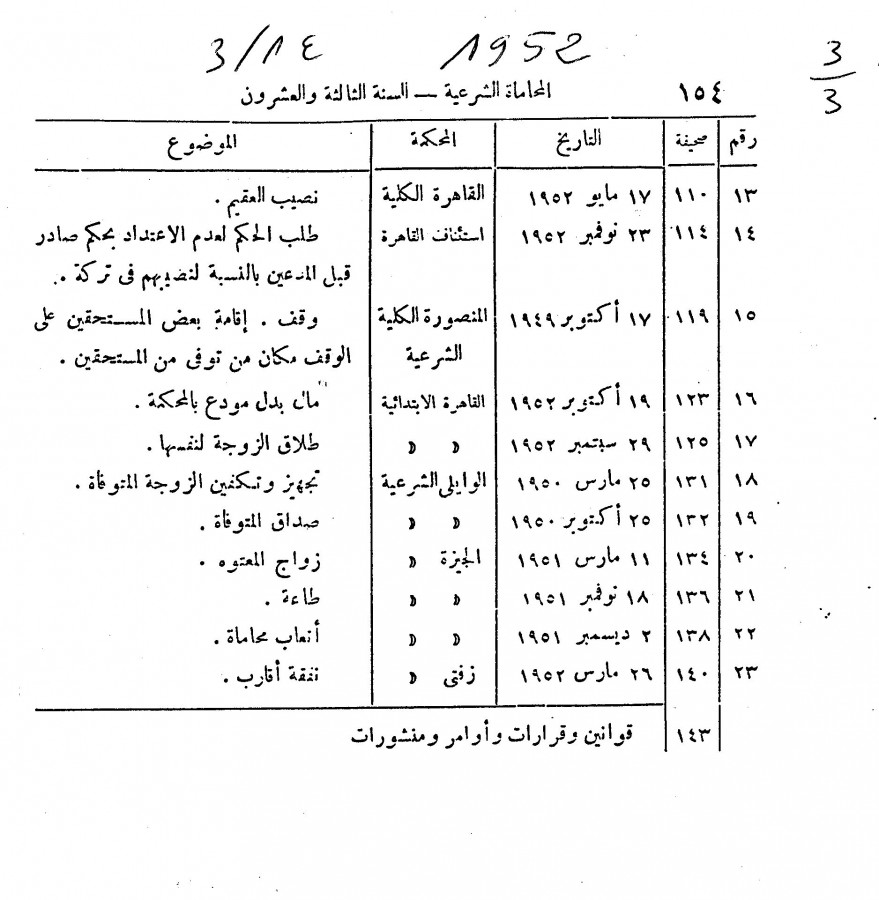 3/14 1952 3/3
١٥٤ المحاماة الشرعية — السنة الثالثة والعشرون
رقم صحيفة التاريخ المحكمة الموضوع
١٣ ١١٠ ١٧ مايو ١٩٥٢ القاهرة الكلية نصيب العقيم .
١٤ ١١٤ ٢٣ نوفمبر ١٩٥٢ استئناف القاهرة طلب الحكم لعدم الاعتداد بحكم صادر
قبل المدعين بالنسبة لنصيبهم فى تركة .
١٥ ١١٩ ١٧ أكتوبر ١٩٤٩ المنصورة الكلية وقف . إقامة بعض المستحقين على
الشرعية الوقف مكان من توفى من المستحقين .
١٦ ١٢٣ ١٩ أكتوبر ١٩٥٢ القاهرة الابتدائية مال بدل مودع بالمحكمة .
١٧ ١٢٥ ٢٩ سبتمبر ١٩٥٢ » » طلاق الزوجة لنفسها .
١٨ ١٣١ ٢٥ مارس ١٩٥٠ الوايلى الشرعية تجهيز وتكفين الزوجة المتوفاة .
١٩ ١٣٢ ٢٥ أكتوبر ١٩٥٠ » » صداق المتوفاة .
٢٠ ١٣٤ ١١ مارس ١٩٥١ الجيزة » زواج المعتوه .
٢١ ١٣٦ ١٨ نوفمبر ١٩٥١ » » طاعة .
٢٢ ١٣٨ ٢ ديسمبر ١٩٥١ » » أتعاب محاماة .
٢٣ ١٤٠ ٢٦ مارس ١٩٥٢ زفتى » نفقة أقارب .
١٤٣ قوانين وقرارات وأوامر ومنشورات